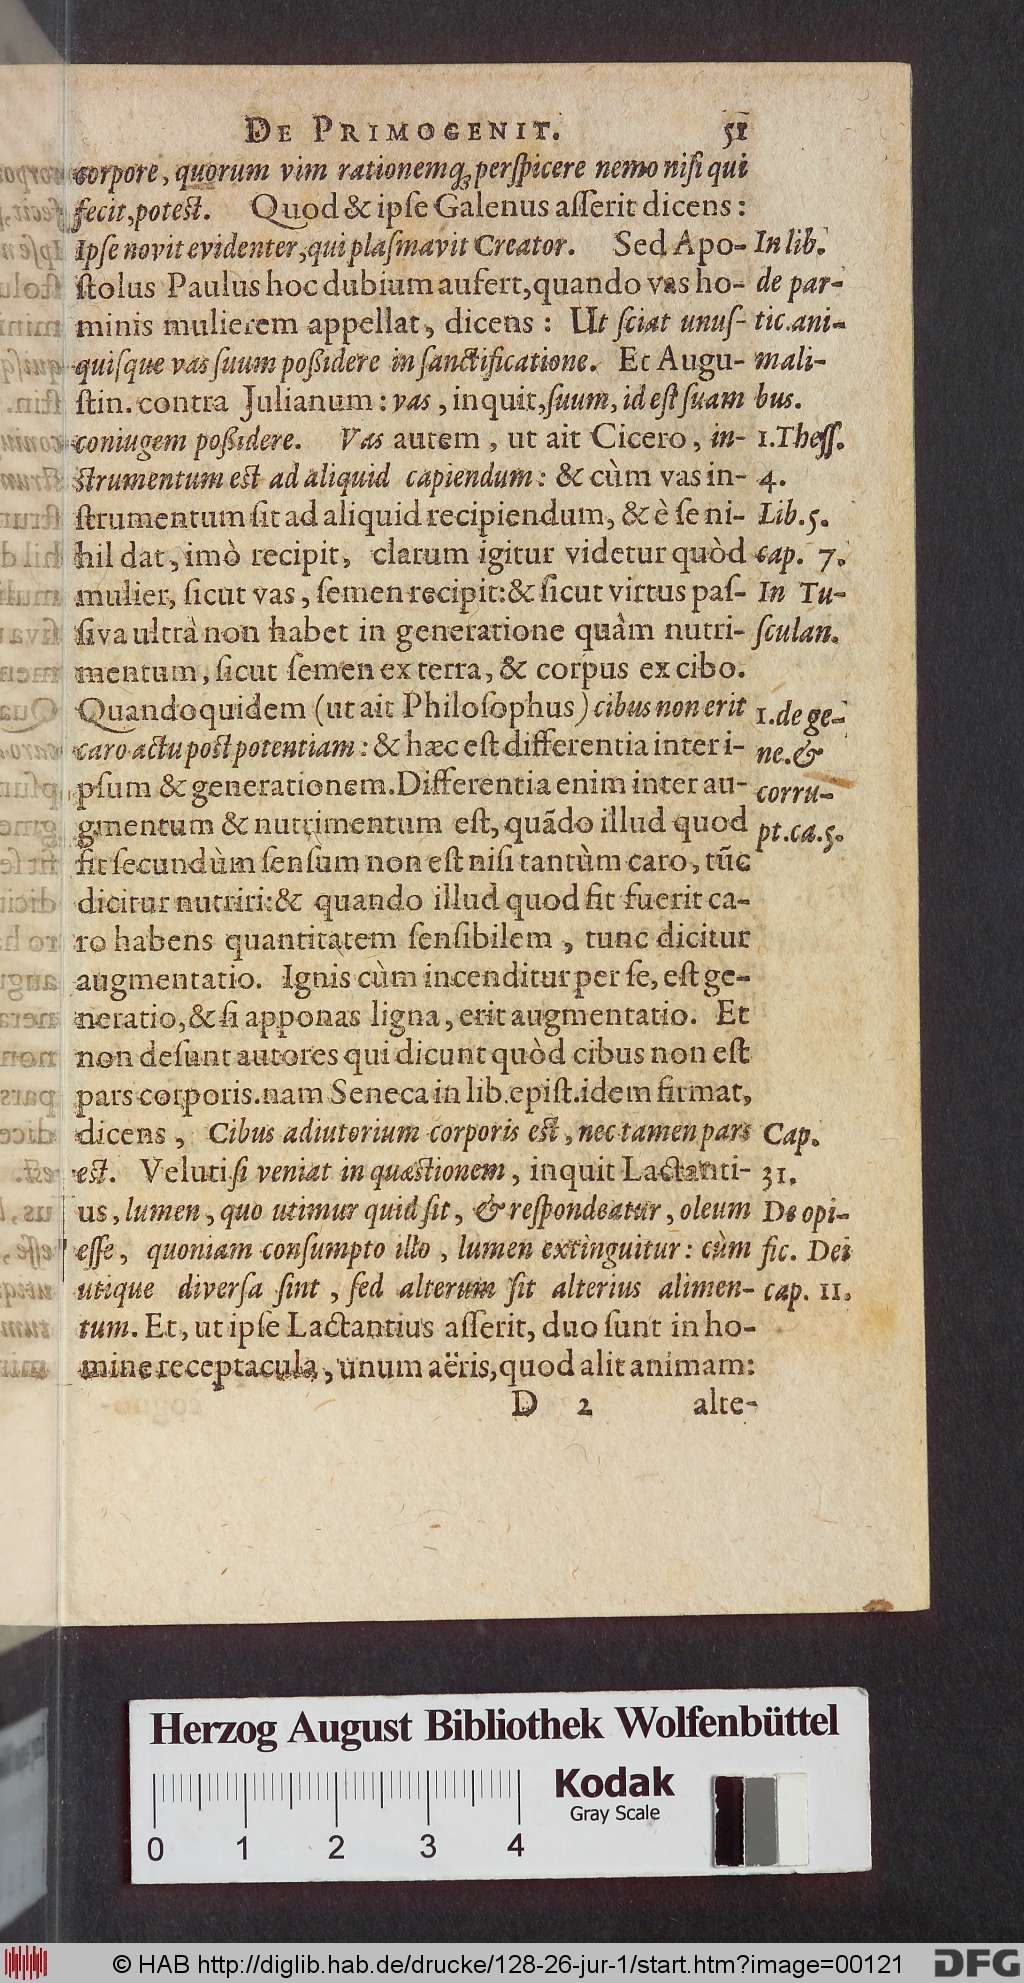 DE PRIMOGENIT. 51
corpore, quorum vim rationemq́; perſpicere nemo niſi qui
fecit, poteſt. Quod & ipſe Galenus aſſerit dicens:
Ipſe novit evidenter, qui plaſmavit Creator. Sed Apo- In lib.
ſtolus Paulus hoc dubium aufert, quando vas ho- de par-
minis mulierem appellat, dicens: Ut ſciat unuſ- tic. ani-
quiſque vas ſuum poßidere in ſanctificatione. Et Augu- mali-
ſtin. contra Julianum: vas, inquit, ſuum, id eſt ſuam bus.
coniugem poßidere. Vas autem, ut ait Cicero, in- 1. Theſſ.
ſtrumentum eſt ad aliquid capiendum: & cùm vas in- 4.
ſtrumentum ſit ad aliquid recipiendum, & è ſe ni- Lib. 5.
hil dat, imò recipit, clarum igitur videtur quòd cap. 7.
mulier, ſicut vas, ſemen recipit: & ſicut virtus paſ- In Tu-
ſiva ultrà non habet in generatione quàm nutri- ſculan.
mentum, ſicut ſemen ex terra, & corpus ex cibo.
Quandoquidem (ut ait Philoſophus) cibus non erit 1. de ge-
caro actu poſt potentiam: & hæc eſt differentia inter i- ne. &
pſum & generationem. Differentia enim inter au- corru-
gmentum & nutrimentum eſt, quãdo illud quod pt. ca. 5.
fit ſecundùm ſenſum non eſt niſi tantùm caro, tũc
dicitur nutriri: & quando illud quod fit fuerit ca-
ro habens quantitatem ſenſibilem, tunc dicitur
augmentatio. Ignis cùm incenditur per ſe, eſt ge-
neratio, & ſi apponas ligna, erit augmentatio. Et
non deſunt autores qui dicunt quòd cibus non eſt
pars corporis. nam Seneca in lib. epiſt. idem firmat,
dicens, Cibus adiutorium corporis eſt, nec tamen pars Cap.
eſt. Veluti ſi veniat in quæſtionem, inquit Lactanti- 31.
us, lumen, quo utimur quid ſit, & reſpondeatur, oleum De opi-
eſſe, quoniam conſumpto illo, lumen extinguitur: cùm fic. Dei
utique diverſa ſint, ſed alterum ſit alterius alimen- cap. 11.
tum. Et, ut ipſe Lactantius aſſerit, duo ſunt in ho-
mine receptacula, unum aëris, quod alit animam:
D 2 alte-
Herzog August Bibliothek Wolfenbüttel
Kodak
Gray Scale
0 1 2 3 4
© HAB http://diglib.hab.de/drucke/128-26-jur-1/start.htm?image=00121 DFG